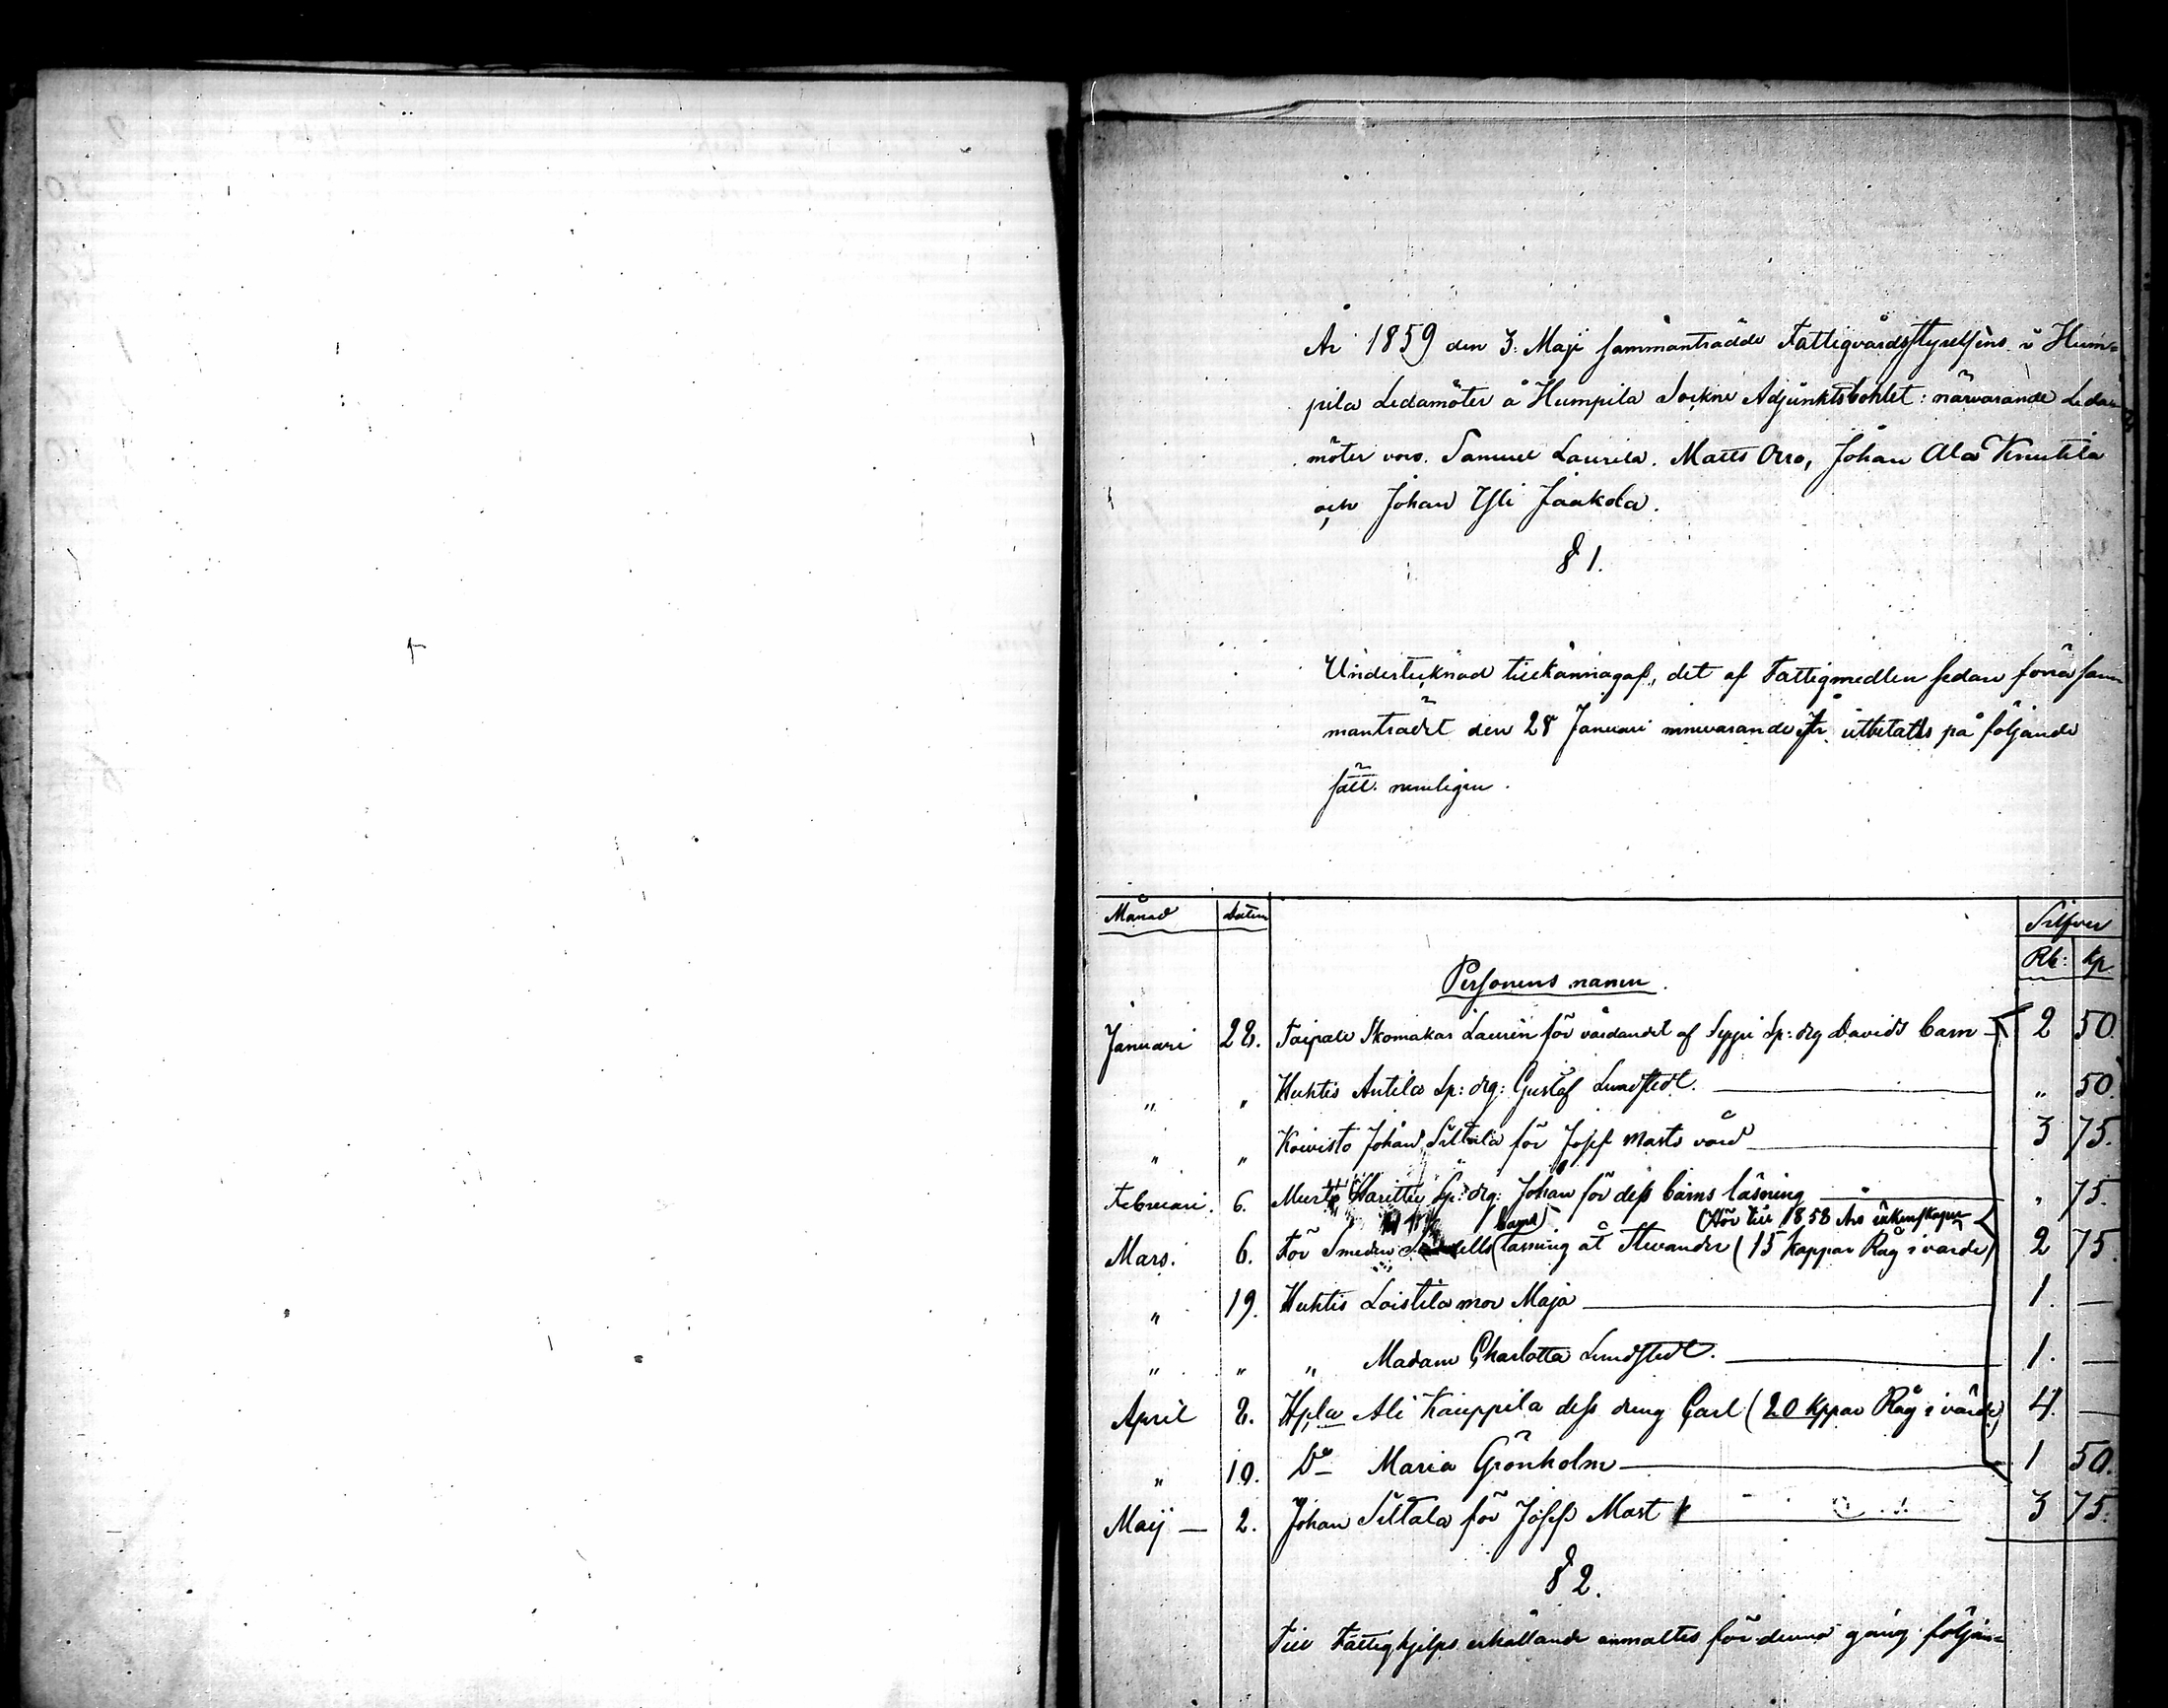 År 1859 den 3. Maji sammanträdde Fattigvårdsstyrelsens i Hum=
pila Ledamöter å Humpila Sockne Adjunktsbohlet: närvarande Leda-
möter voro. Samuel Laurila. Matts Orro, Johan Ala Knutila
och Johan Yli Jaakola.
§ 1.
Undertecknad tillkännagaf, det af Fattigmedlen sedan förra sam-
manträdet den 28 Januari innevarande År utbetalts på följande
sätt. nemligen.
Månad Datum Silfver
Personens namn. Rb: kp.
Januari 28. Taipale Skomakar Laurén för vårdandet af Seppi Sp: drg Davids barn 2 50.
" " Huhtis Antila Sp: drg: Gustaf Lundstedt. " 50.
" " Koivisto Johan Siltala för Josef Masts vård 3 75.
Februari. 6. Murto Sp: drg: Johan för dess barns läsning " 75.
(Hör till 1858 Års räkenskaper)
Mars. 6. För Smeden barns läsning åt Stevander (15 kappar Råg i värde) 2 75.
" 19. Huhtis Loistila mor Maja 1. —
" " " Madam Charlotta Lundstedt. 1. —
April 2. Hpla Ali Kauppila dess dreng Carl (20 kppar Råg i värde) 4. —
" 10. Do Maria Grönholm 1 50.
Maij — 2. Johan Siltala för Josef Mast 3 75.
§ 2.
Till Fattighjelps erhållande anmältes för denna gång följan=